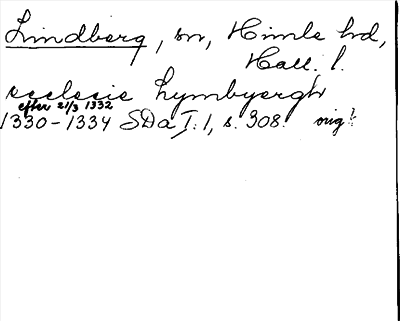 Lindberg, sn, Himle hd,
Hall. l.
ecclesie Lymbyergh
efter 21/3 1332
1330-1334 SDa I: 1, s. 308. orig?